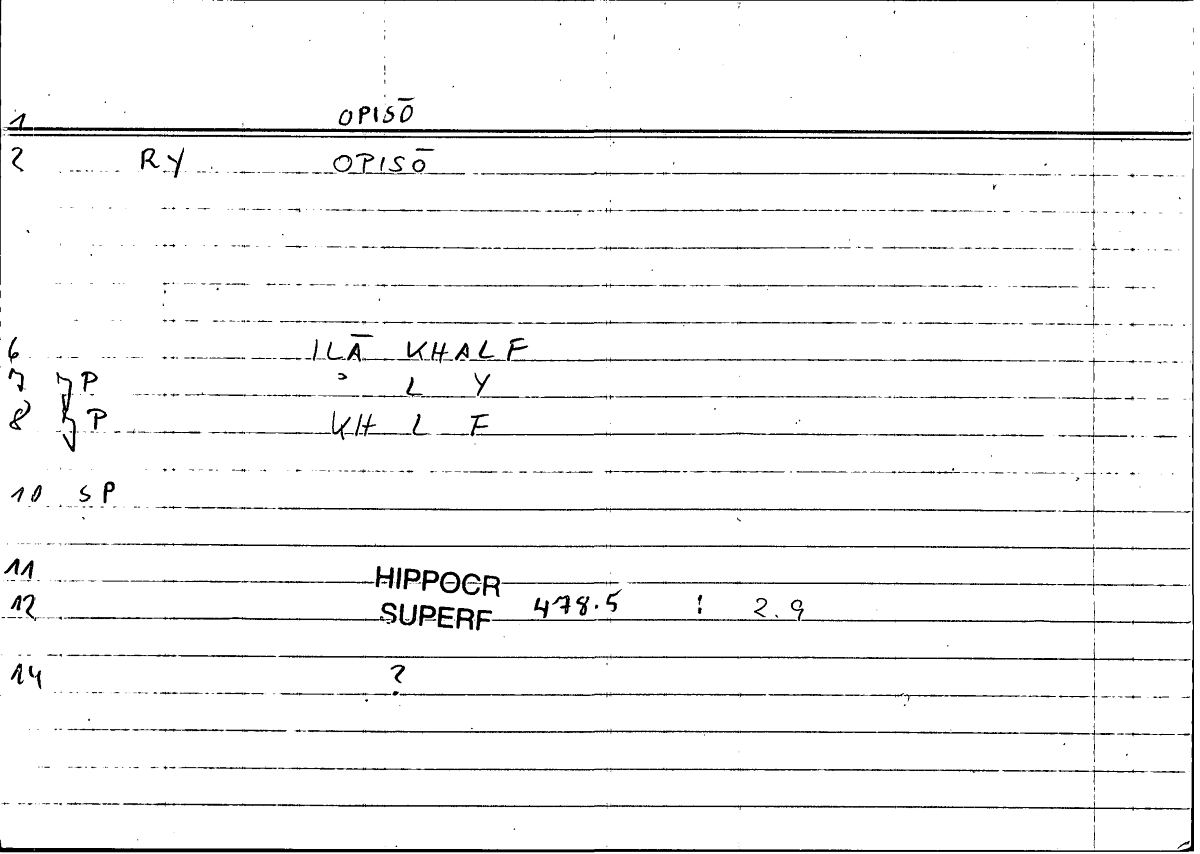 1 OPISŌ
2 RY OPISŌ
6 ILĀ KHALF
7 P ʾ L Y
8 P KH L F
10 SP
11 HIPPOCR
12 SUPERF 478.5 : 2.9
14 ?